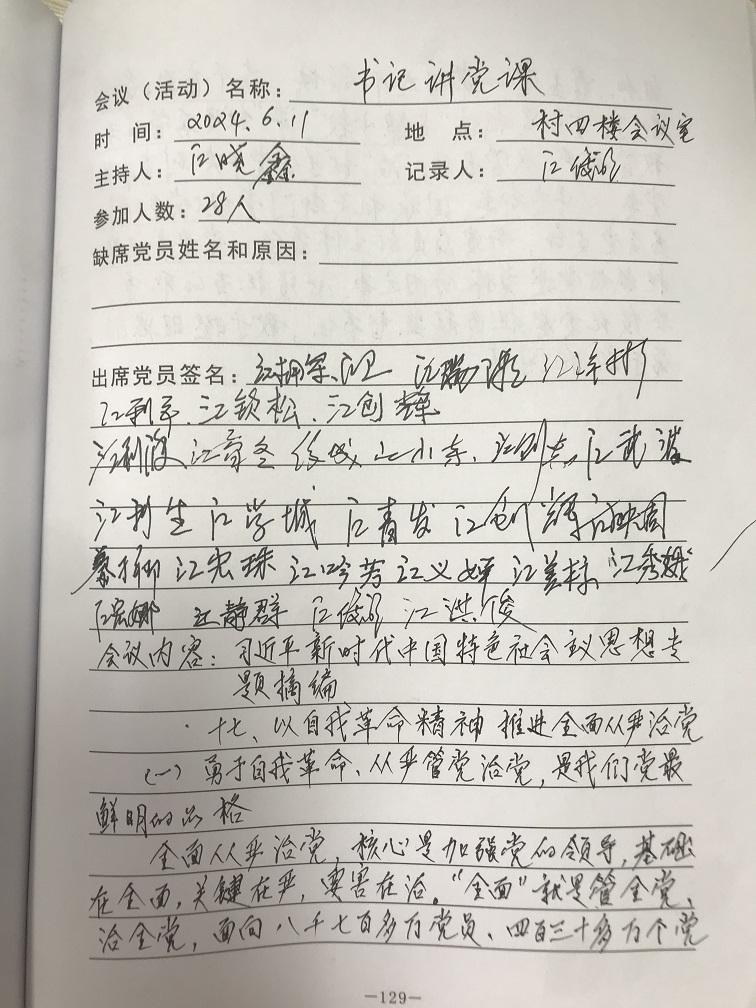 会议（活动）名称：书记讲党课
时 间：2024.6.11 地 点：村四楼会议室
主持人：江晓鑫 记录人：江
参加人数：28人
缺席党员姓名和原因：
出席党员签名：江
江利 江锐松、江创辉
江利波 江 冬 江武波
江利生 江学城 江青发 江创
江宏珠 江吟芳 江义婵 江美 江秀娥
江静群 江洪俊
会议内容：习近平新时代中国特色社会主义思想专
题摘编
十七、以自我革命精神推进全面从严治党
（一）勇于自我革命、从严管党治党，是我们党最
鲜明的品格
全面从严治党，核心是加强党的领导，基础
在全面，关键在严，要害在治。“全面”就是管全党、
治全党，面向八千七百多万党员、四百三十多万个党
—129—